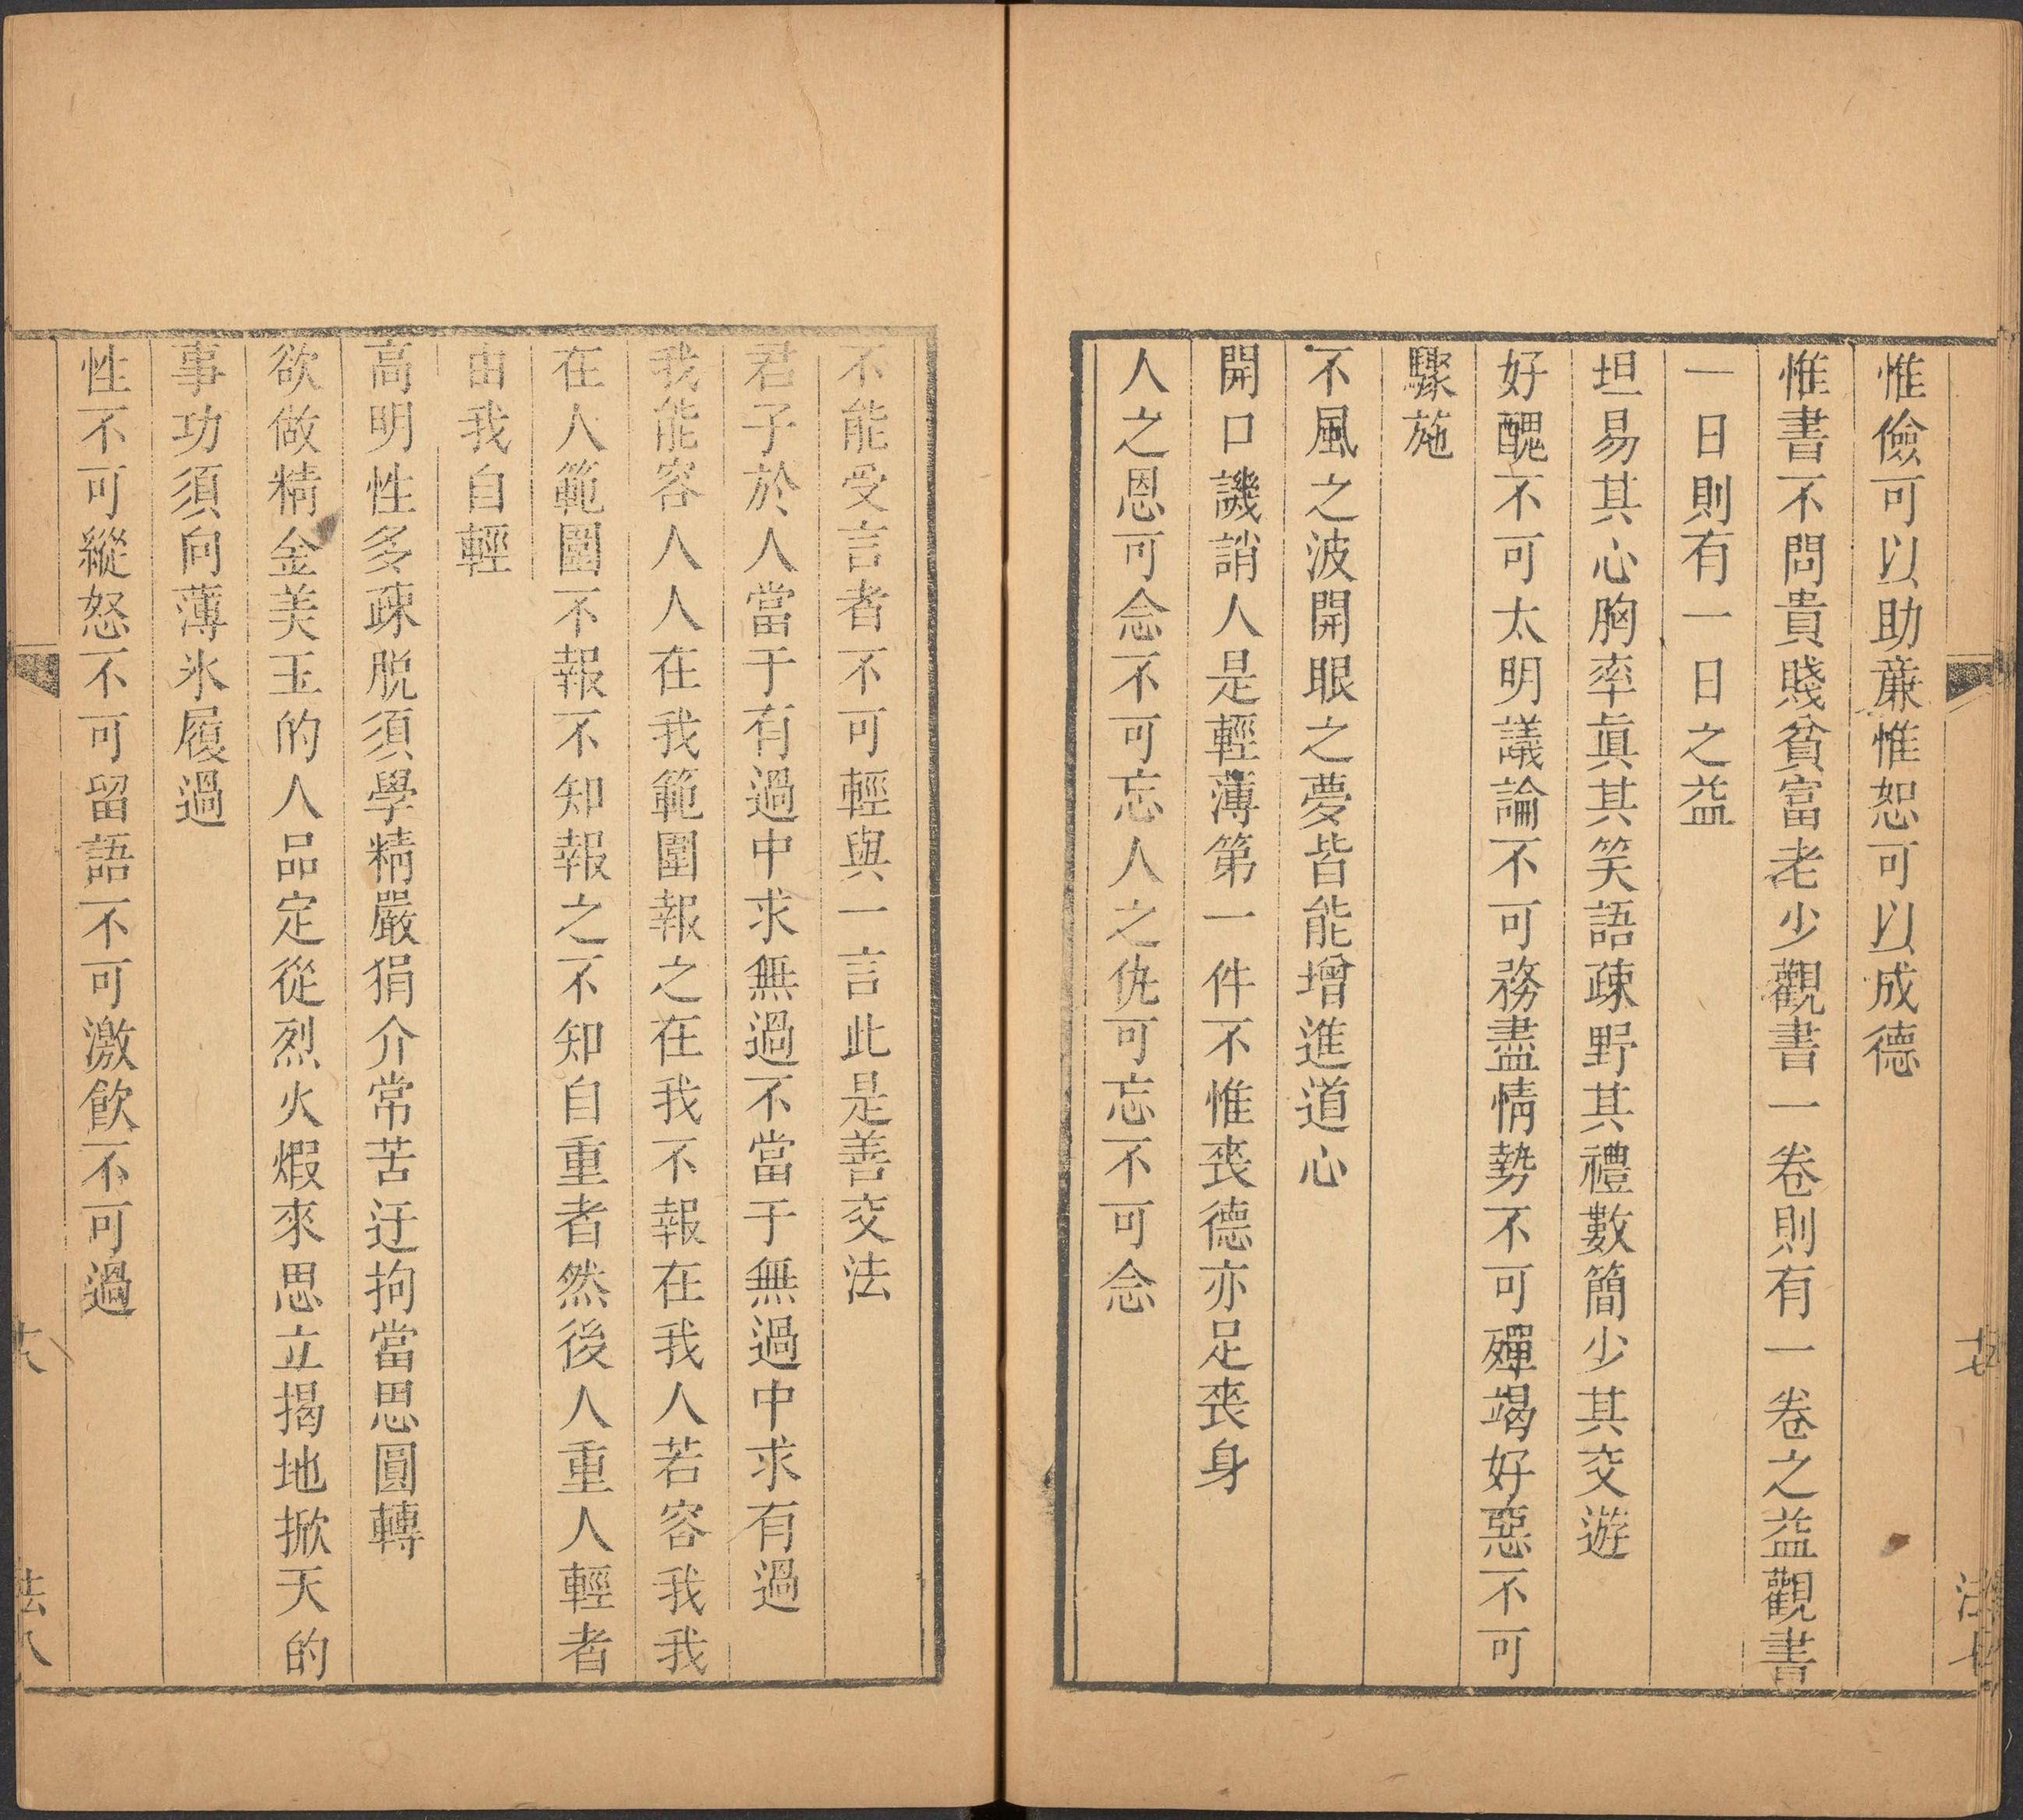 惟儉可以助亷惟恕可以成德
惟書不問貴賤貧富老少觀書一卷則有一卷之益觀書
一日則有一日之益
坦易其心胸率眞其笑語疎野其禮數簡少其交遊
好醜不可太明議論不可務盡情勢不可殫竭好惡不可
驟施
不風之波開眼之夢皆能增進道心
開口譏誚人是輕薄第一件不惟喪德亦足喪身
人之恩可念不可忘人之仇可忘不可念
十七
法七
不能受言者不可輕與一言此是善交法
君子於人當于有過中求無過不當于無過中求有過
我能容人人在我範圍報之在我不報在我人若容我我
在人範圍不報不知報之不知自重者然後人重人輕者
由我自輕
高明性多疎脫須學精嚴狷介常苦迂拘當思圓轉
欲做精金美玉的人品定從烈火煆來思立揭地掀天的
事功須向薄氷履過
性不可縱怒不可留語不可激飲不可過
法八